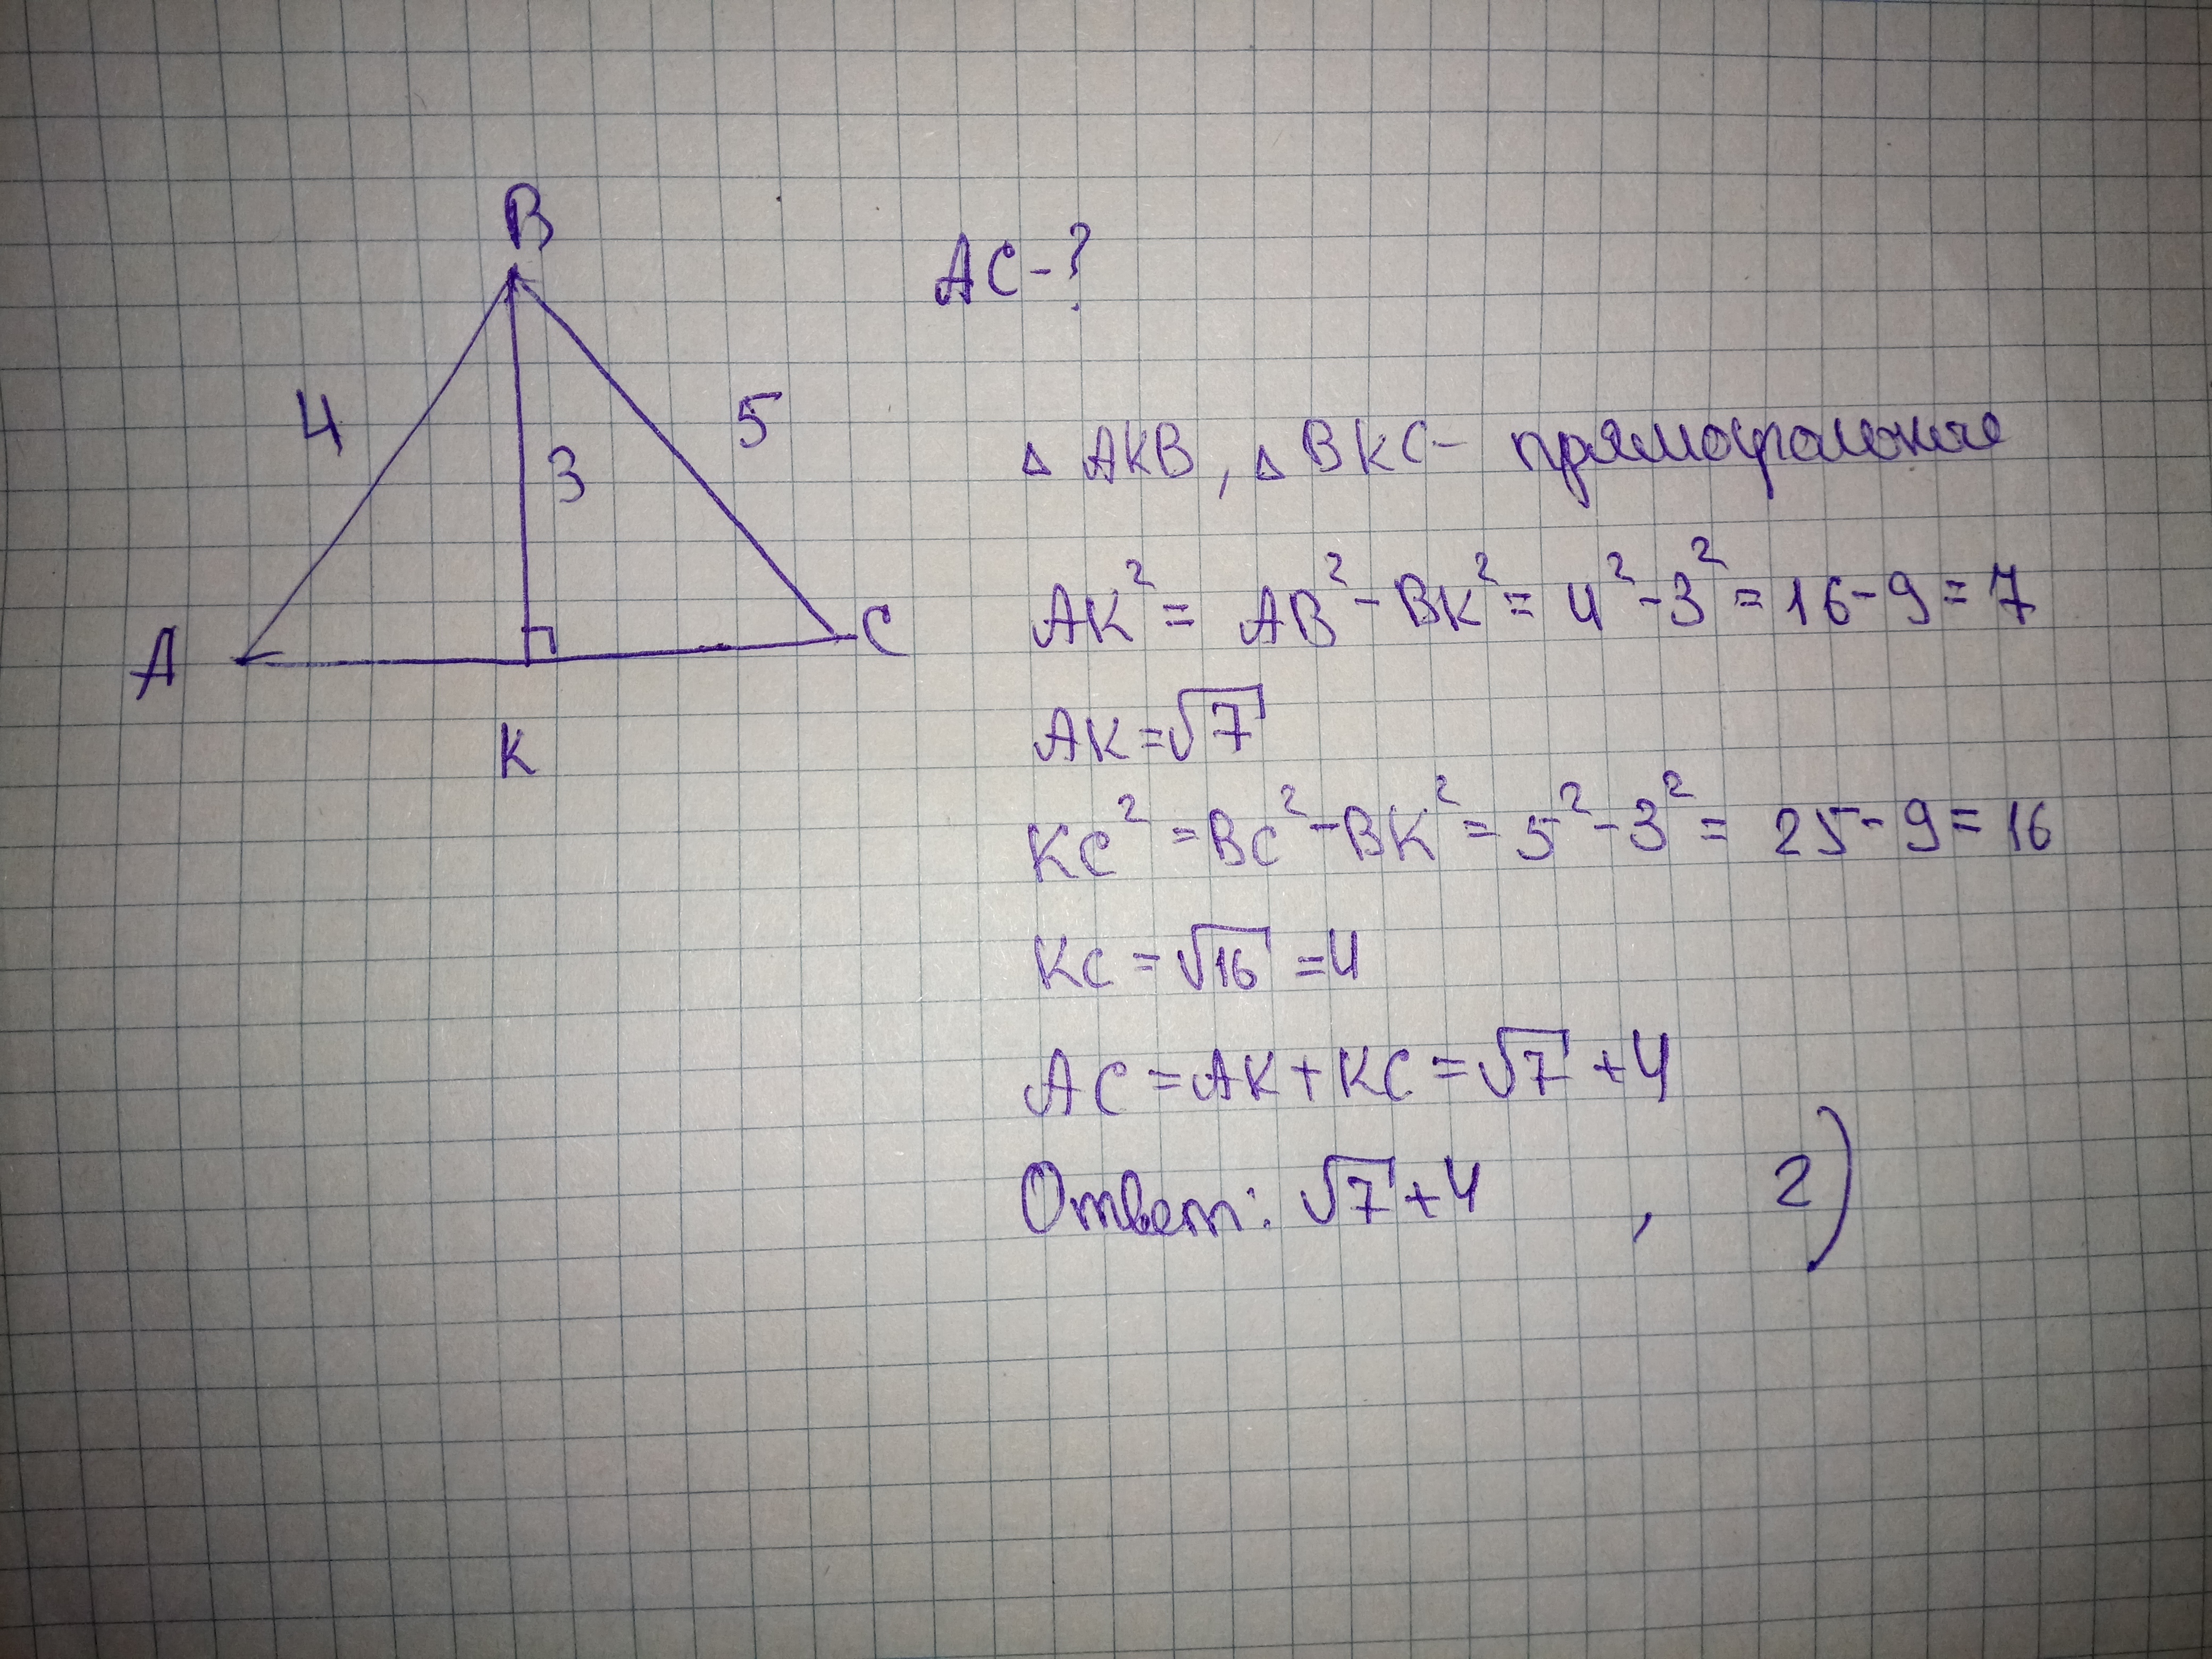 B
AC-?
4
5
3
A
C
K
△ AKB, △ BKC- прямоугольные
AK² = AB² - BK² = 4² - 3² = 16 - 9 = 7
AK = √7
KC² = BC² - BK² = 5² - 3² = 25 - 9 = 16
KC = √16 = 4
AC = AK + KC = √7 + 4
Ответ: √7 + 4 , 2)